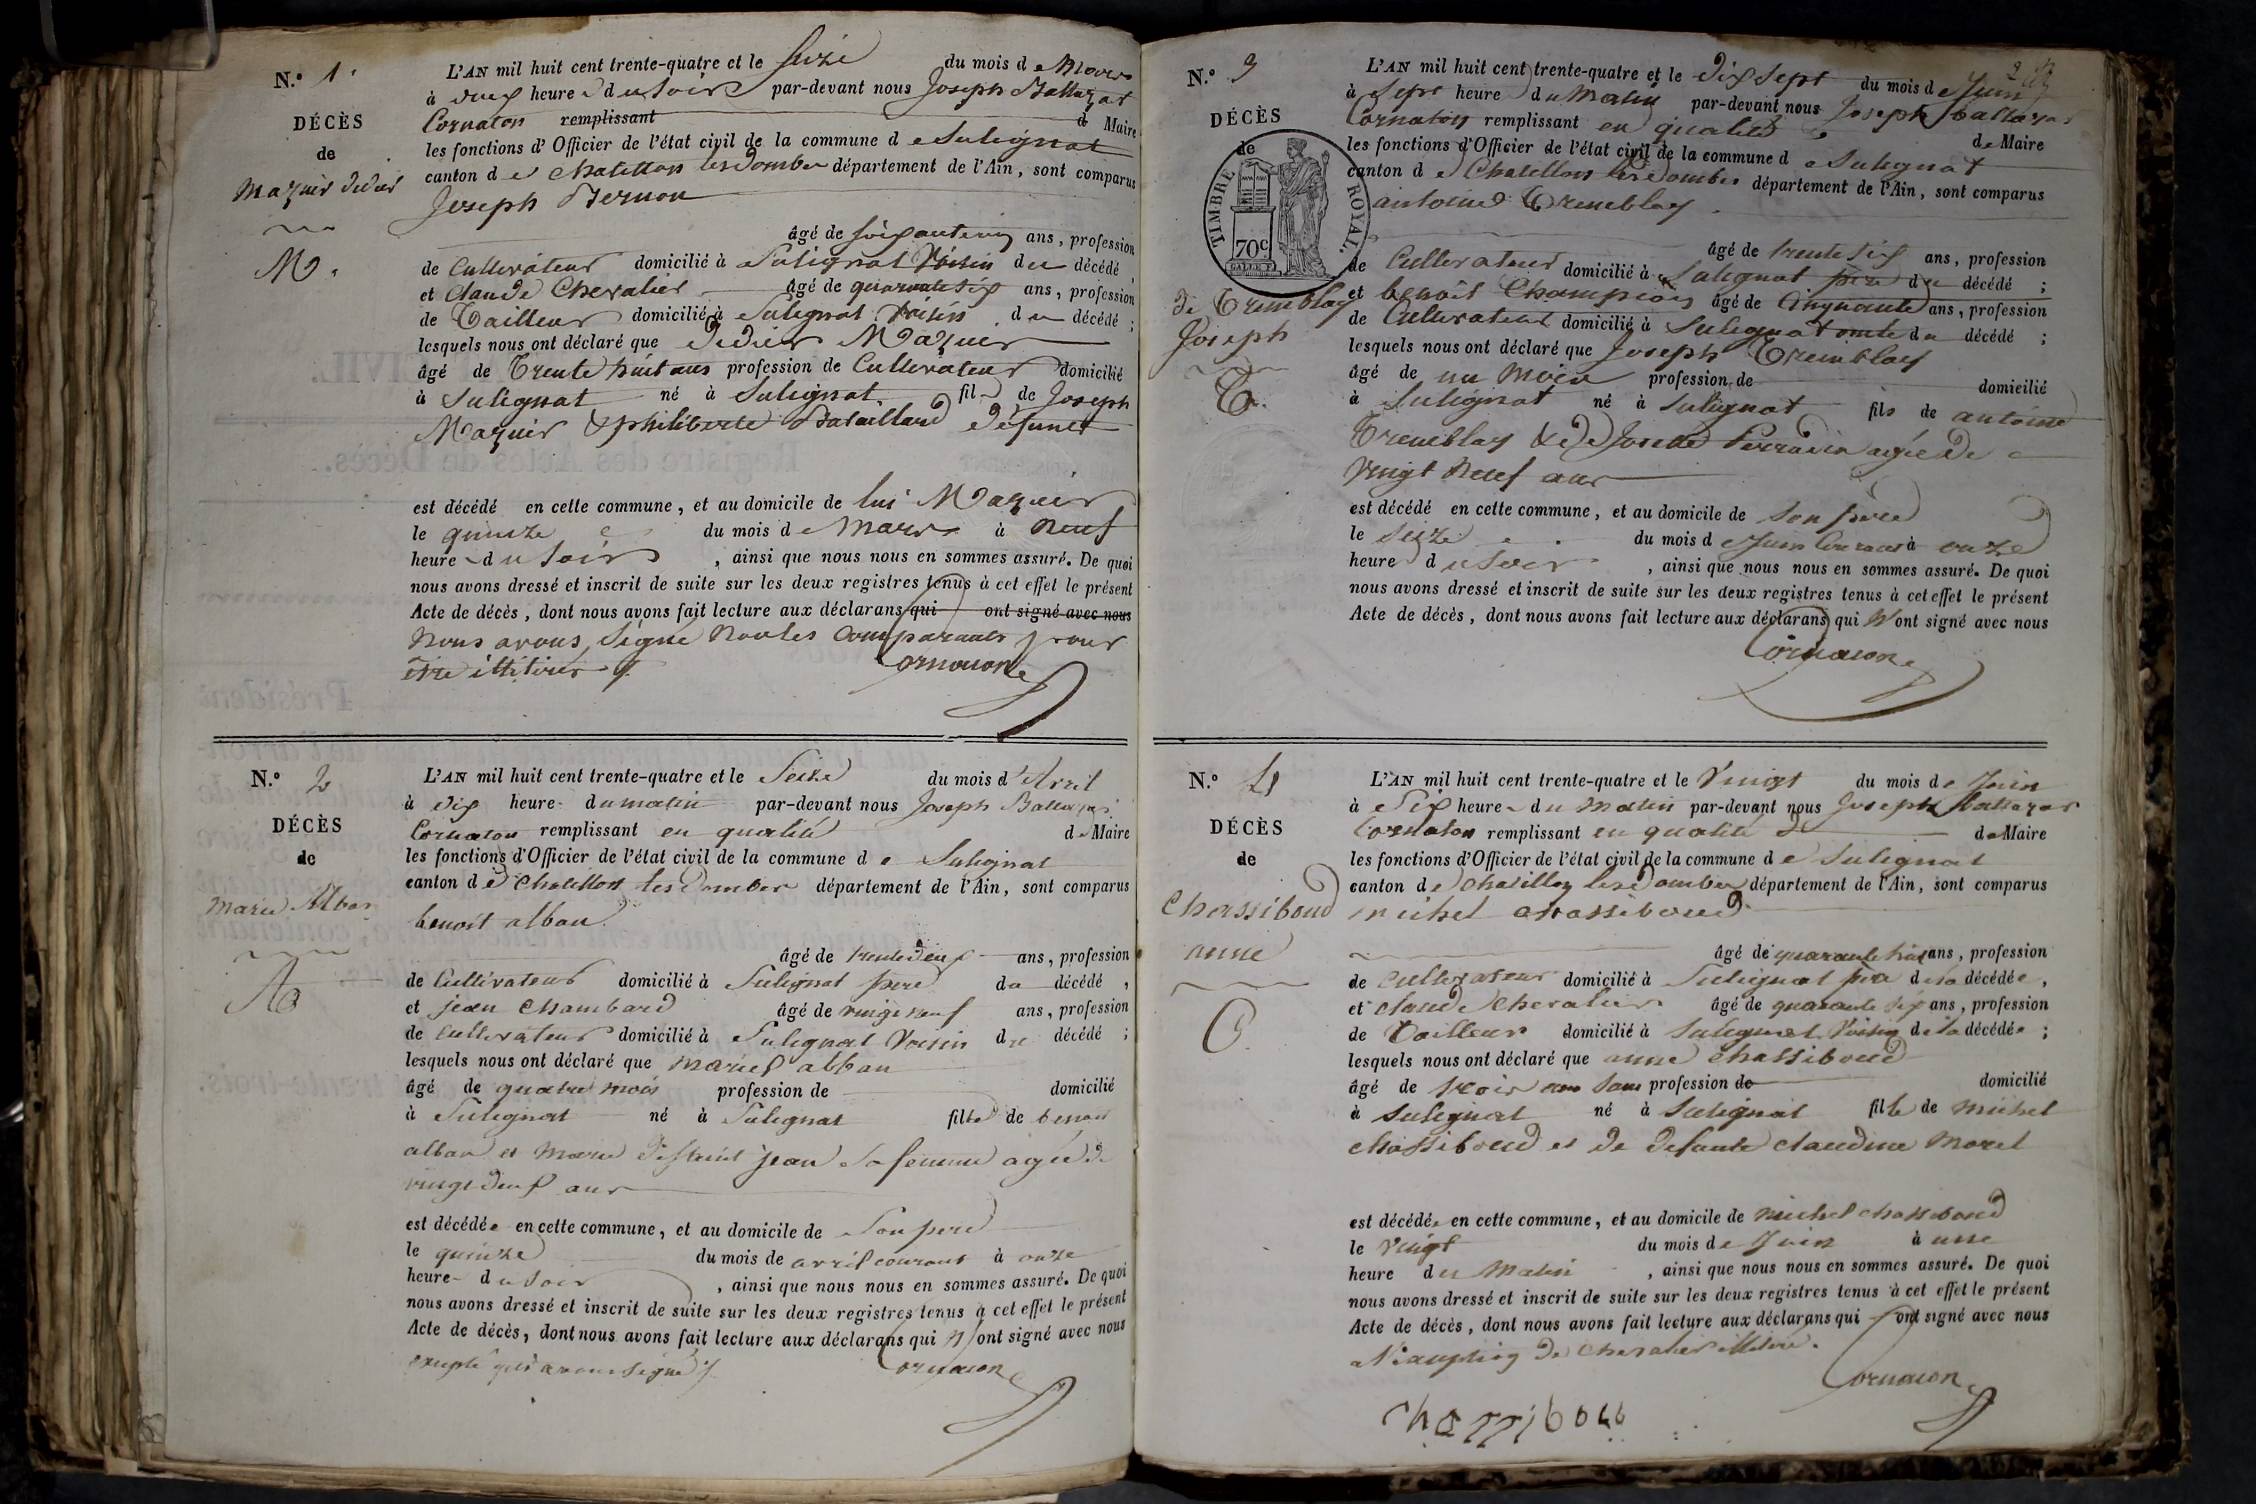 N.º 1.
DÉCÈS
de
Mazuir didier
M.
L'AN mil huit cent trente-quatre et le seize du mois de Mars
à deux heure du soir par-devant nous Joseph Baltazar
Cornaton remplissant d Maire
les fonctions d'Officier de l'état civil de la commune de Sulignat
canton de Chatillon les Dombes département de l'Ain, sont comparus
Joseph Bernon
âgé de ans, profession
de Cultivateur domicilié à Sulignat Voisin du décédé,
et Claude Chevalier âgé de quarante six ans, profession
de Tailleur domicilié à Sulignat Voisin du décédé;
lesquels nous ont déclaré que didier Mazuir
âgé de Trente huit ans profession de Cultivateur domicilié
à Sulignat né à Sulignat fils de Joseph
Mazuir & philiberte Bataillard défunts
est décédé en cette commune, et au domicile de lui Mazuir
le quinze du mois de Mars à neuf
heure du soir, ainsi que nous nous en sommes assuré. De quoi
nous avons dressé et inscrit de suite sur les deux registres tenus à cet effet le présent
Acte de décès, dont nous avons fait lecture aux déclarans qui ont signé avec nous
nous avons signé non les comparants pour
être illitirés
Cornaton
N.º 2
DÉCÈS
de
Marie Alban
A
L'AN mil huit cent trente-quatre et le Seize du mois d'Avril
à dix heure du matin par-devant nous Joseph Baltazar
Cornaton remplissant en qualité de Maire
les fonctions d'Officier de l'état civil de la commune de Sulignat
canton de Chatillon les Dombes département de l'Ain, sont comparus
benoit alban
âgé de trente deux ans, profession
de Cultivateur domicilié à Sulignat père du décédé,
et jean Chambard âgé de vingt neuf ans, profession
de cultivateur domicilié à Sulignat Voisin du décédé;
lesquels nous ont déclaré que marie alban
âgé de quatre mois profession de domicilié
à Sulignat né à Sulignat fille de benoit
alban et Marie jean sa femme agée de
vingt deux ans
est décédée en cette commune, et au domicile de son père
le quinze du mois de avril courant à onze
heure du soir, ainsi que nous nous en sommes assuré. De quoi
nous avons dressé et inscrit de suite sur les deux registres tenus à cet effet le présent
Acte de décès, dont nous avons fait lecture aux déclarans qui N'ont signé avec nous
avons signé
Cornaton
N.º 3
DÉCÈS
de
TIMBRE ROYAL.
70c
de Tremblay
Joseph
T.
L'AN mil huit cent trente-quatre et le dix sept du mois de Juin
à sept heure du Matin par-devant nous Joseph baltazar
Cornaton remplissant en qualité de Maire
les fonctions d'Officier de l'état civil de la commune de Sulignat
canton de Chatillon les Dombes département de l'Ain, sont comparus
antoine Tremblay
âgé de trente six ans, profession
de Cultivateur domicilié à Sulignat père du décédé;
et benoit Champion âgé de Cinquante ans, profession
de Cultivateur domicilié à Sulignat oncle du décédé;
lesquels nous ont déclaré que Joseph Tremblay
âgé de un mois profession de domicilié
à Sulignat né à Sulignat fils de antoine
Tremblay & de Josette Perradin agée de
vingt neuf ans
est décédé en cette commune, et au domicile de son père
le seize du mois de Juin Courant à onze
heure du soir, ainsi que nous nous en sommes assuré. De quoi
nous avons dressé et inscrit de suite sur les deux registres tenus à cet effet le présent
Acte de décès, dont nous avons fait lecture aux déclarans qui N'ont signé avec nous
Cornaton
N.º 4
DÉCÈS
de
Chassiboud
anne
C.
L'AN mil huit cent trente-quatre et le Vingt du mois de Juin
à Six heure du Matin par-devant nous Joseph Baltazar
Cornaton remplissant en qualité de Maire
les fonctions d'Officier de l'état civil de la commune de Sulignat
canton de Chatillon les Dombes département de l'Ain, sont comparus
michel chassiboud
âgé de quarante huit ans, profession
de cultivateur domicilié à Sulignat père de la décédée,
et claude chevalier âgé de quarante six ans, profession
de Tailleur domicilié à Sulignat Voisin de la décédée;
lesquels nous ont déclaré que anne chassiboud
âgé de trois ans sans profession de domicilié
à Sulignat né à Sulignat fille de michel
chassiboud et de defunte claudine Morel
est décédée en cette commune, et au domicile de michel chassiboud
le Vingt du mois de Juin à une
heure du Matin, ainsi que nous nous en sommes assuré. De quoi
nous avons dressé et inscrit de suite sur les deux registres tenus à cet effet le présent
Acte de décès, dont nous avons fait lecture aux déclarans qui ont signé avec nous
de chevalier illitiré.
Cornaton
chassiboud